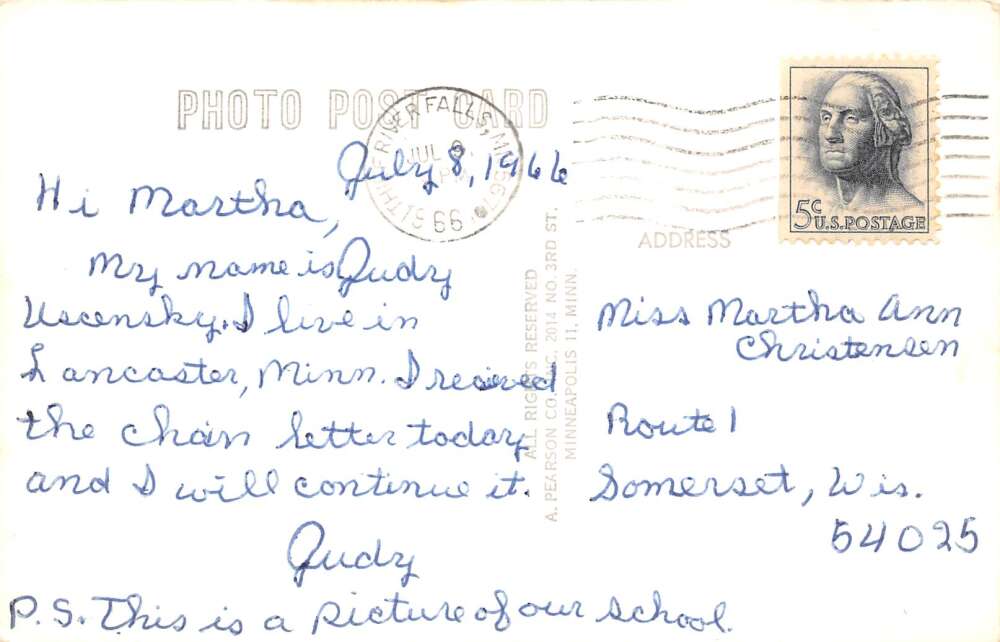 PHOTO POST CARD
THIEF RIVER FALLS, MINN. 567
JUL 8
PM
1966
5¢
U.S. POSTAGE
July 8, 1966
Hi Martha,
My name is Judy
Uscensky. I live in
Lancaster, Minn. I recieved
the chain letter today
and I will continue it.
Judy
P.S. This is a picture of our school.
ALL RIGHTS RESERVED
A. PEARSON CO. INC. 2014 NO. 3RD ST.
MINNEAPOLIS 11, MINN.
ADDRESS
Miss Martha Ann
Christensen
Route 1
Somerset, Wis.
54025